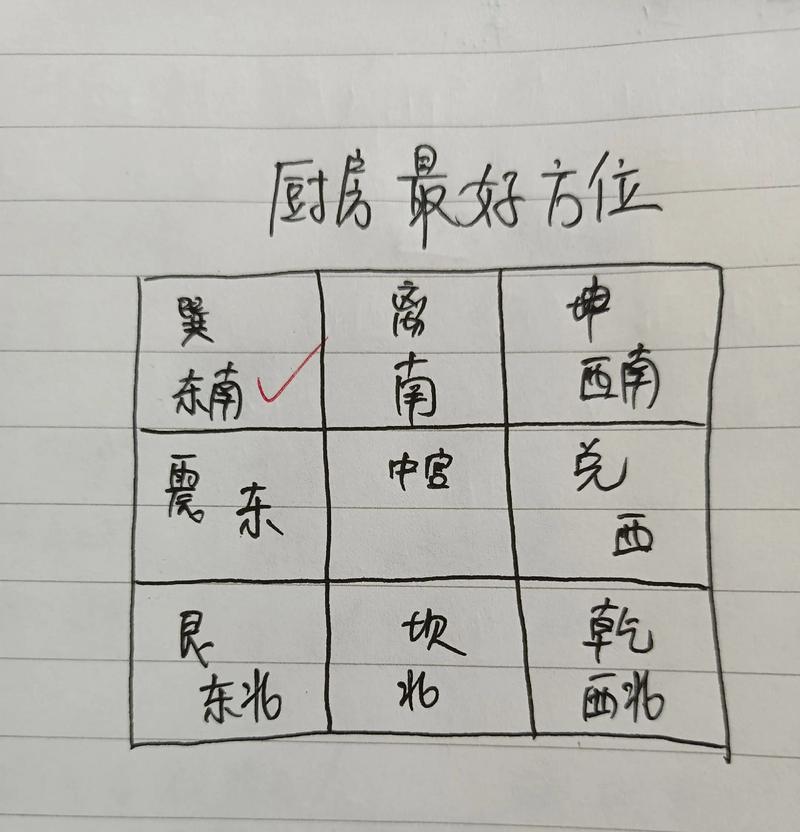 厨房最好方位
巽 离 坤
东南 南 西南
震 东 中宫 兑
西
艮 坎 乾
东北 北 西北